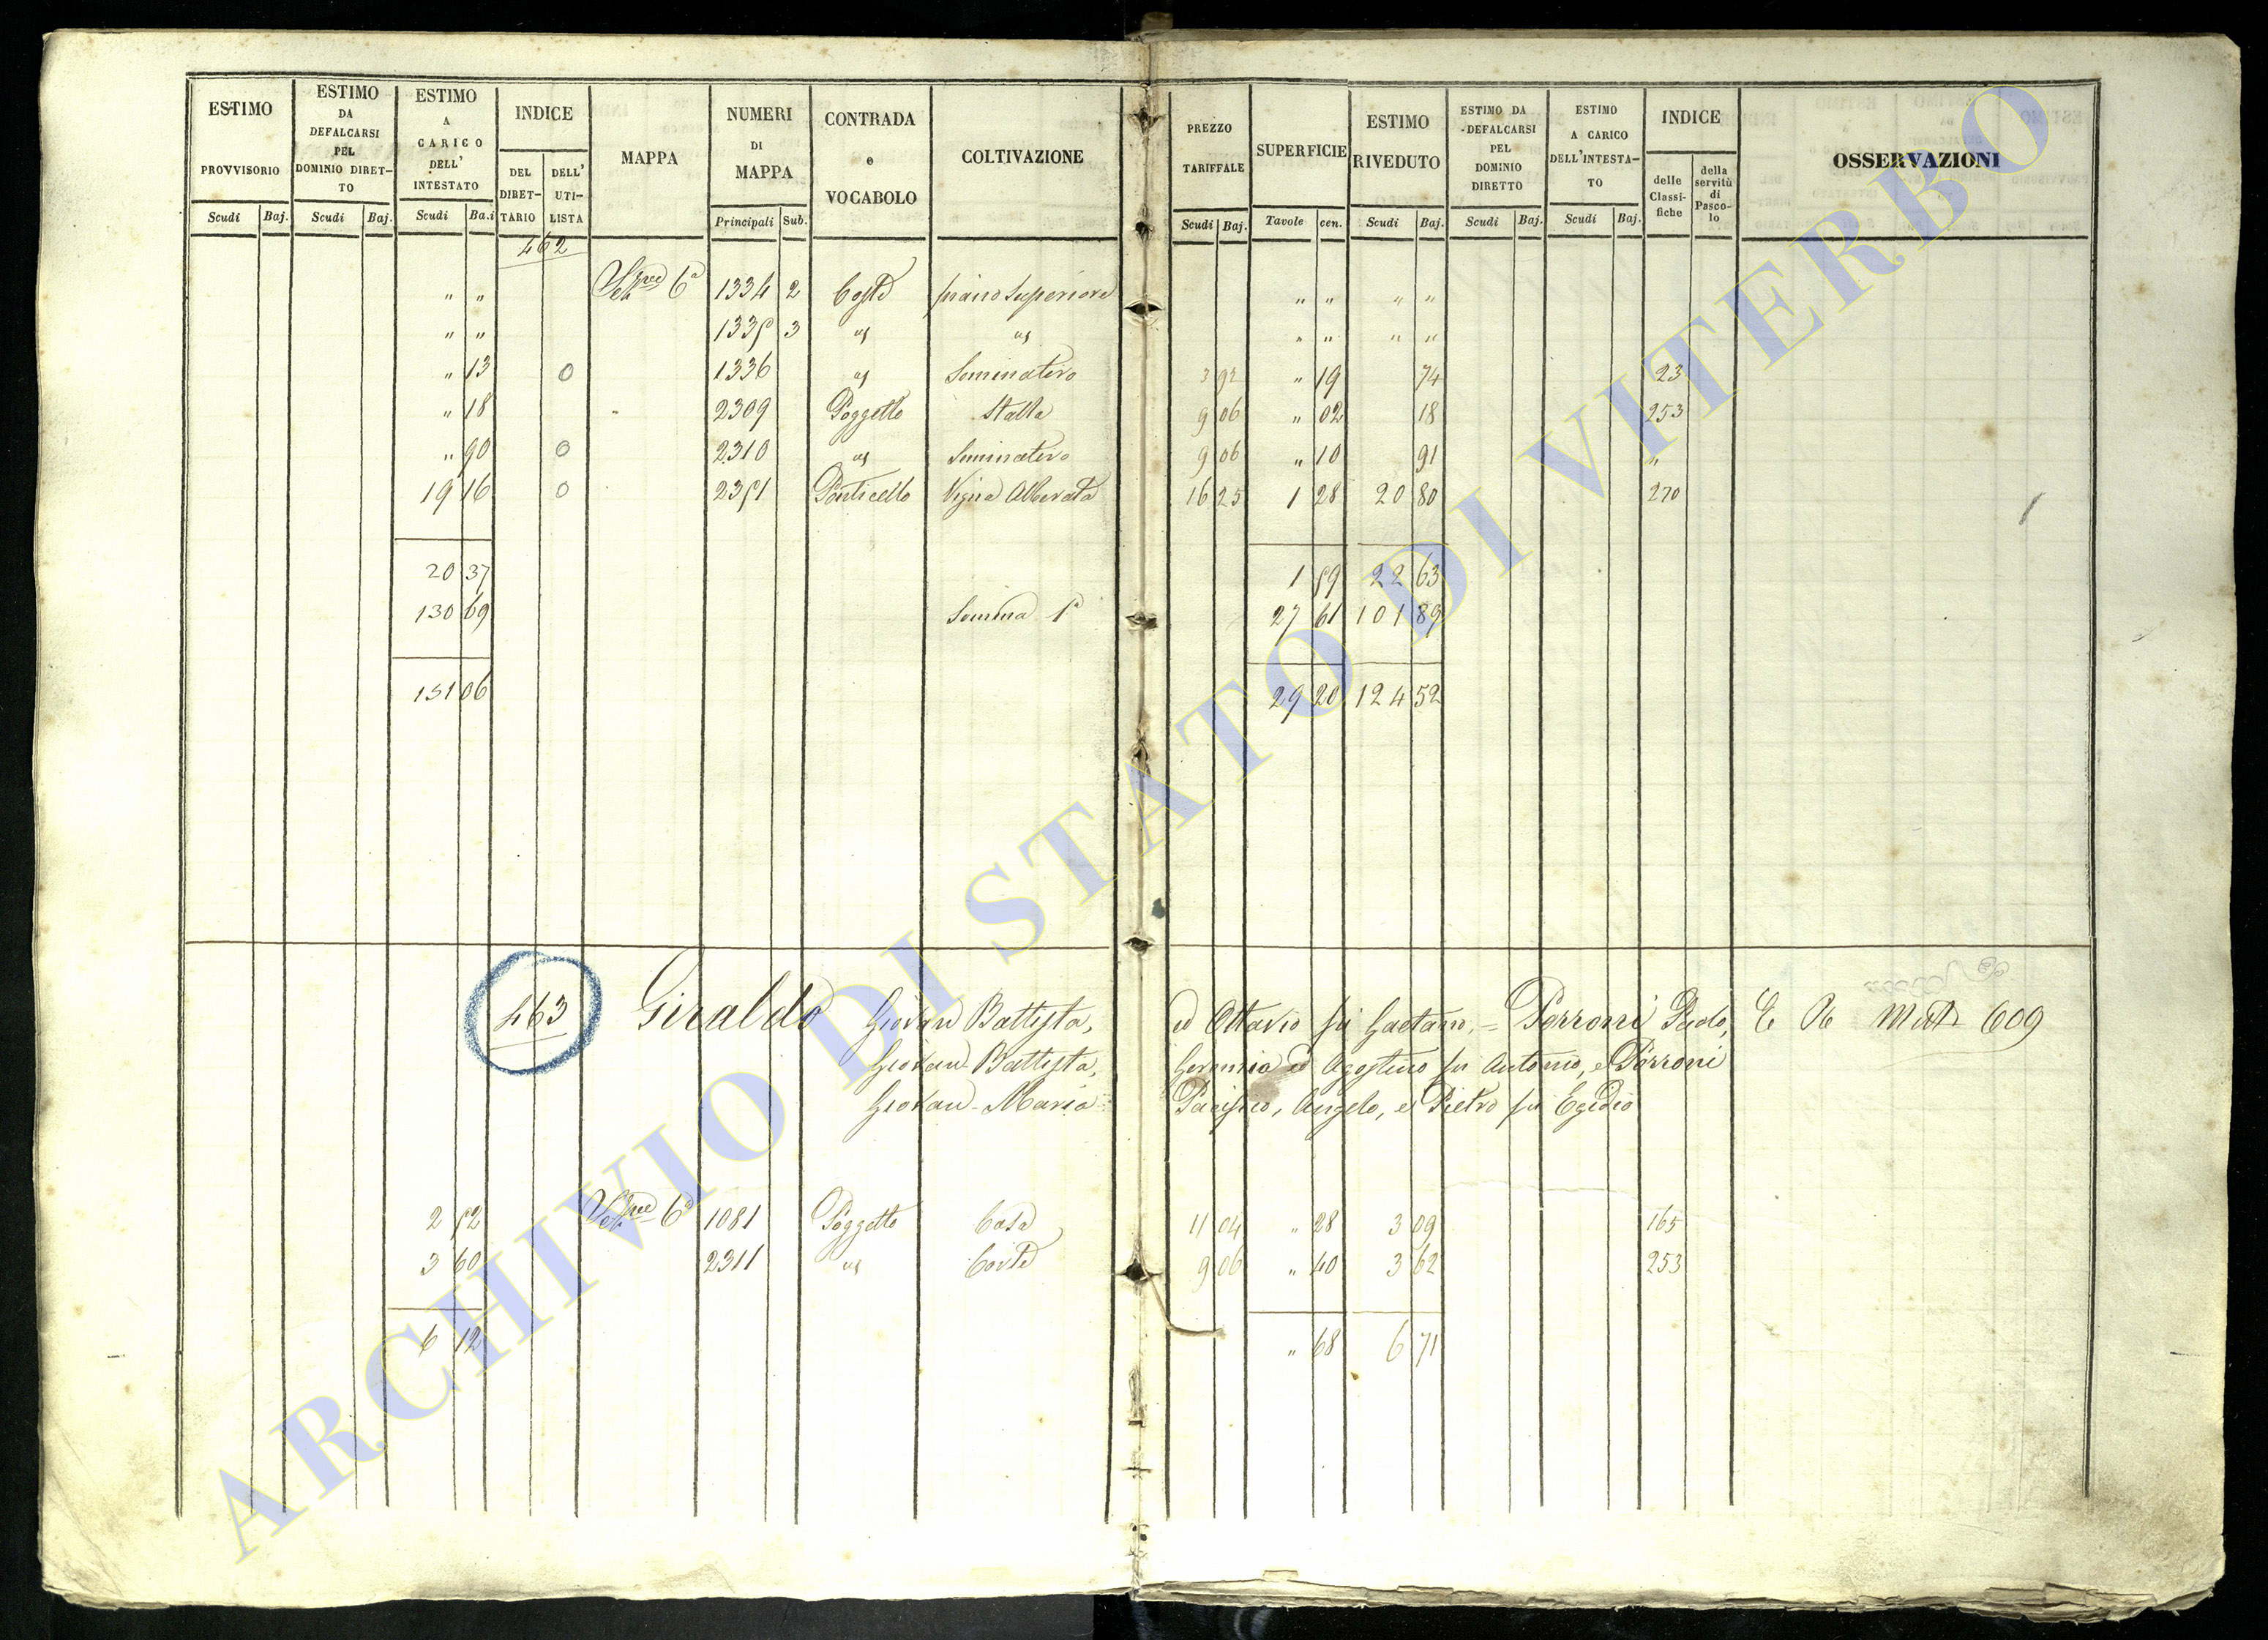 ESTIMO PROVVISORIO Scudi Baj.
ESTIMO DA DEFALCARSI PEL DOMINIO DIRETTO Scudi Baj.
ESTIMO A CARICO DELL' INTESTATO Scudi Ba.i
INDICE DEL DIRETTARIO DELL' UTILISTA
MAPPA
NUMERI DI MAPPA Principali Sub.
CONTRADA e VOCABOLO
COLTIVAZIONE
PREZZO TARIFFALE Scudi Baj.
SUPERFICIE Tavole cen.
ESTIMO RIVEDUTO Scudi Baj.
ESTIMO DA DEFALCARSI PEL DOMINIO DIRETTO Scudi Baj.
ESTIMO A CARICO DELL'INTESTATO Scudi Baj.
INDICE delle Classifiche della servitù di Pascolo
OSSERVAZIONI
462
" " 6a 1334 2 Corte piano Superiore " " " "
" " 1335 3 " " " " " "
" 13 0 1336 " Seminativo 3 92 " 19 74 23
" 18 2309 Poggetto Stalla 9 06 " 02 18 253
" 90 0 2310 " Seminativo 9 06 " 10 91 "
19 16 0 2351 Ponticello Vigna Alberata 16 25 1 28 20 80 270
20 37 1 59 22 63
130 69 Somma 1a 27 61 101 89
151 06 29 20 124 52
463 Giraldo Giovan Battista, ed Ottavio fu Gaetano, = Porroni Paolo, E R Matr 609
Giovan Battista, Geremia ed Agostino fu Antonio, e Porroni
Giovan-Maria Pacifico, Angelo, e Pietro fu Egidio
2 52 6a 1081 Poggetto Casa 11 04 " 28 3 09 165
3 60 2311 " Corte 9 06 " 40 3 62 253
6 12 " 68 6 71
ARCHIVIO DI STATO DI VITERBO